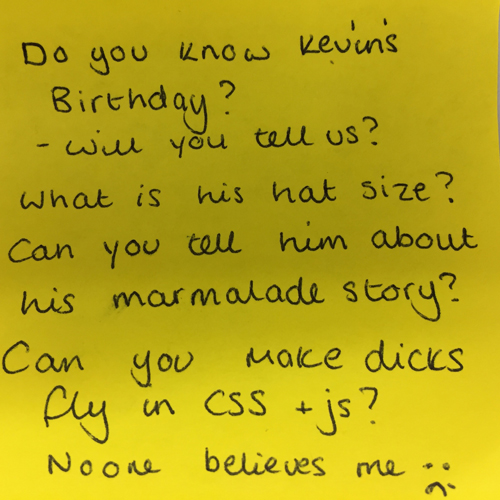 Do you know Kevin's
Birthday?
- will you tell us?
What is his hat size?
Can you tell him about
his marmalade story?
Can you make dicks
fly in CSS + js?
Noone believes me :(